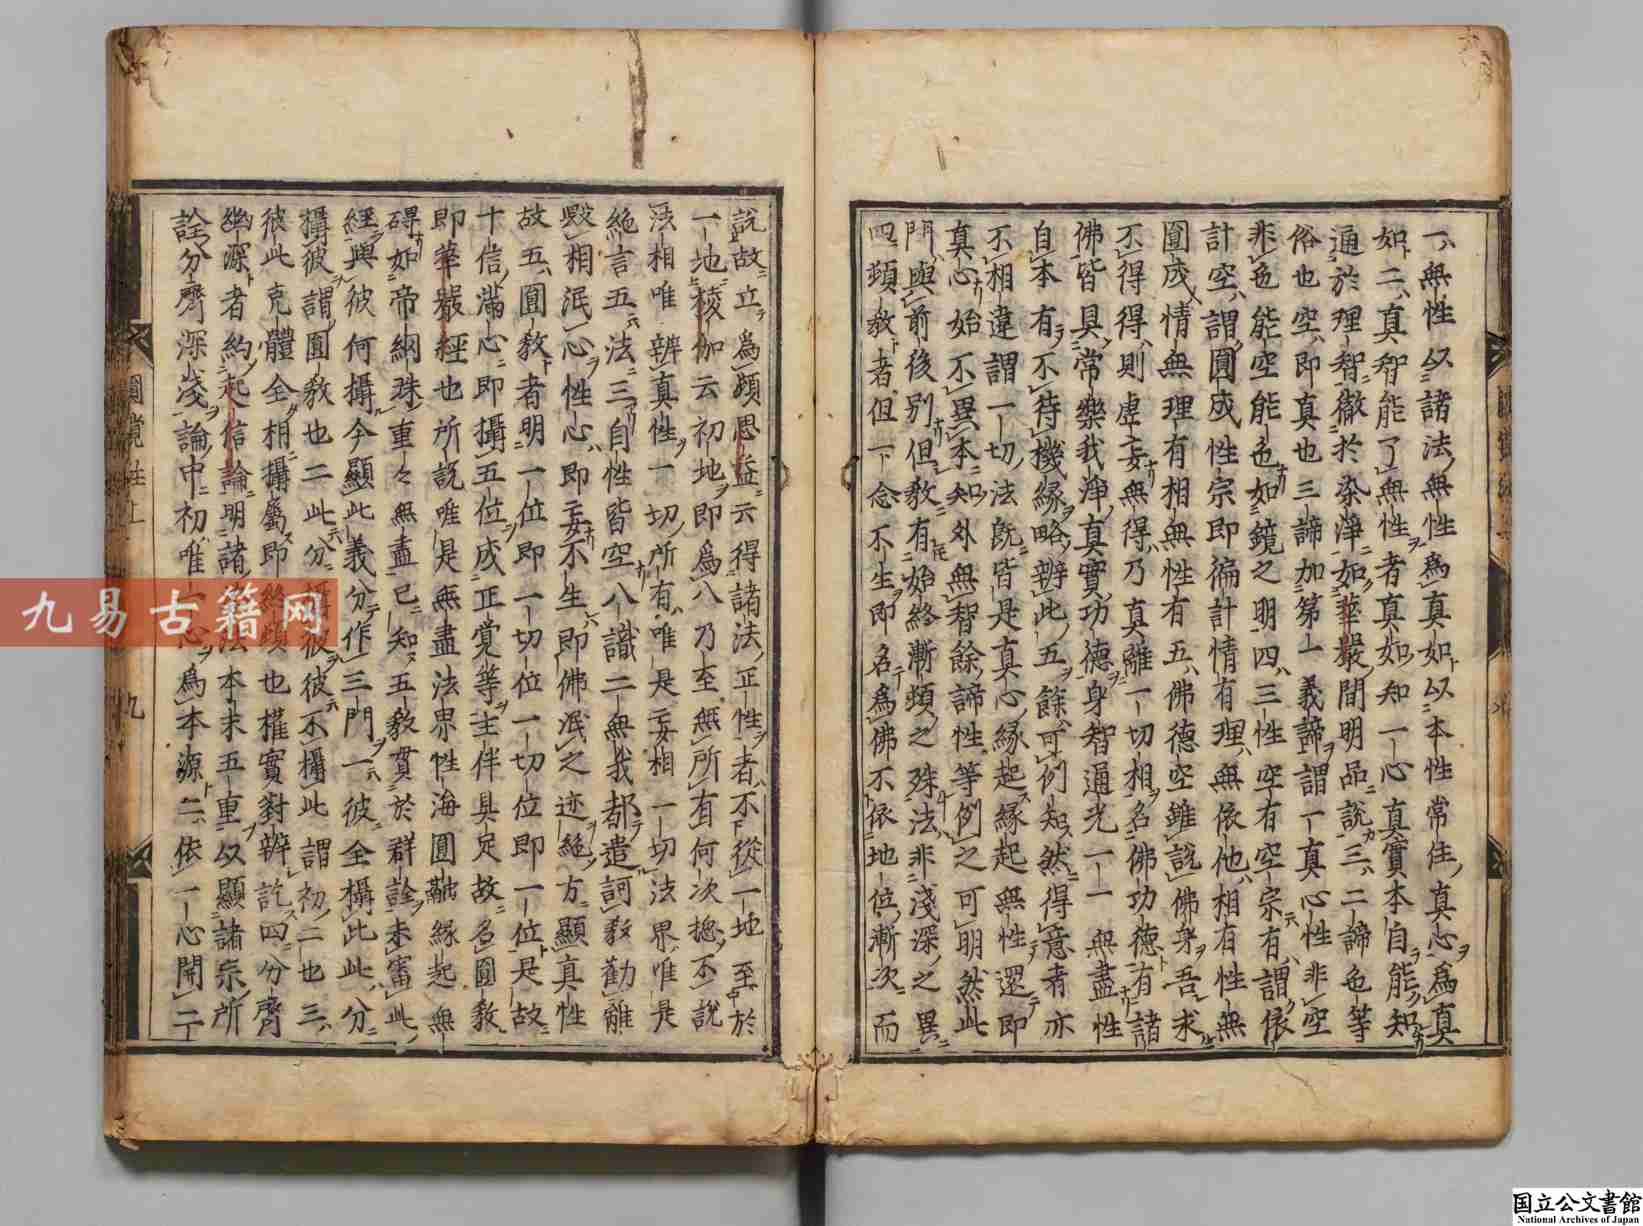 一無性以諸法無性爲真如以本性常住真心爲真
如二真智能了無性者真如知一心真實本自能知
通於理智徹於染淨如華嚴問明品說三二諦色等
俗也空即真也三諦加第一義諦謂一真心性非空
非色能空能色如鏡之明四三性空有空宗有謂依
計空謂圓成性宗即徧計情有理無依他相有性無
圓成情無理有相無性有五佛德空雖說佛身吾求
不得得則虛妄無得乃真離一切相名佛功德有諸
佛皆具常樂我淨真實功德身智通光一一無盡性
自本有不待機緣略辨此五餘可例知然得意者亦
不相違謂一切法旣皆是真心緣起緣起無性還即
真心始不異本知外無智餘諦性等例之可明然此
門與前後別但教有始終漸頓之殊法非淺深之異
四頓教者但一念不生即名爲佛不依地位漸次而
說故立爲頓思益云得諸法正性者不從一地至於
一地楞伽云初地即爲八乃至無所有何次摠不說
法相唯辨真性一切所有唯是妄相一切法界唯是
絶言五法三自性皆空八識二無我都遣訶教勸離
毀相泯心性心即妄不生即佛泯之迹絶方顯真性
故五圓教者明一位即一切位一切位即一位是故
十信滿心即攝五位成正覺等主伴具足故名圓教
即華嚴經也所說唯是無盡法界性海圓融緣起無
碍如帝網珠重々無盡已知五教貫於群詮未審此
經與彼何攝今顯此義分作三門一彼全攝此此分
攝彼謂圓教也二此分攝彼彼不攝此謂初二也三
彼此克體全相攝屬即終頓也權實對辨訖四分齊
幽深者約起信論明諸法本末五重以顯諸宗所
詮分齊深淺論中初唯一心爲本源二依一心開二
圓覺註上
九
九易古籍网
国立公文書館
National Archives of Japan